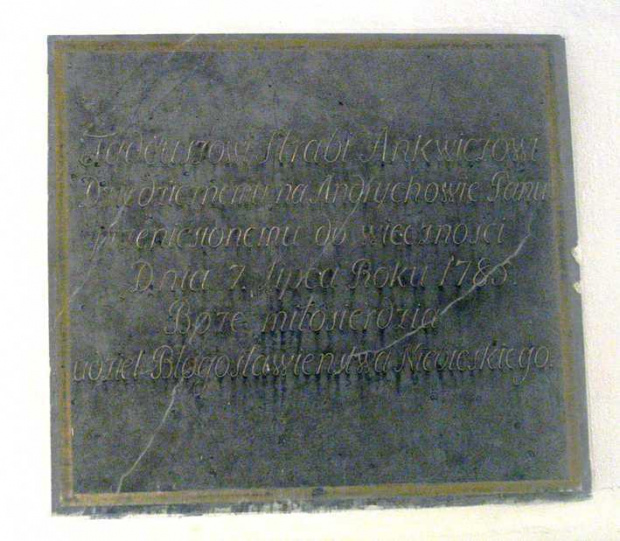 Tadeuszowi Hrabi Ankwiczowi
Dziedzicznemu na Andrychowie Panu
przeniesionemu do wieczności
Dnia 7. lipca Roku 1785.
Boże miłosierdzia
udziel Błogosławieństwa Niebieskiego.